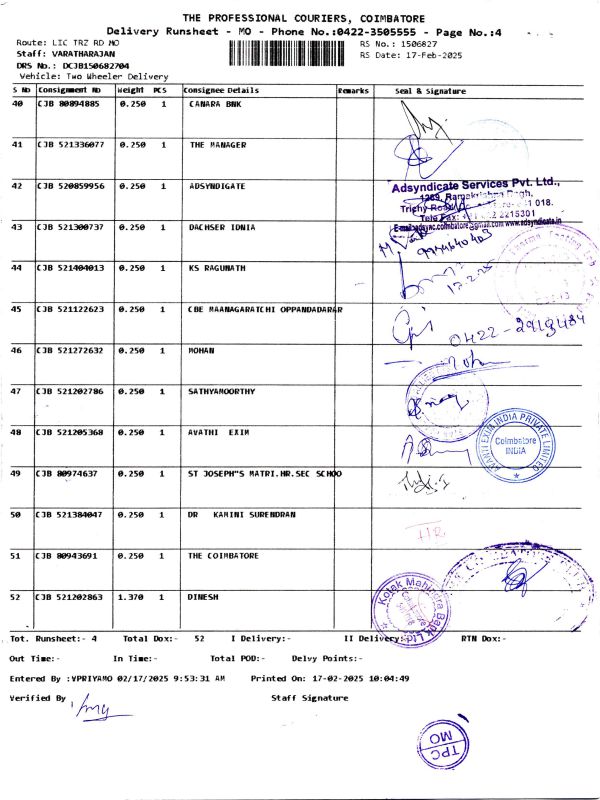 THE PROFESSIONAL COURIERS, COIMBATORE
Delivery Runsheet - MO - Phone No.:0422-3505555 - Page No.:4
Route: LIC TRZ RD MO
RS No.: 1506827
Staff: VARATHARAJAN
RS Date: 17-Feb-2025
DRS No.: DCJB150682704
Vehicle: Two Wheeler Delivery
S No Consignment No Weight PCS Consignee Details Remarks Seal & Signature
40 CJB 80894885 0.250 1 CANARA BNK
41 CJB 521336077 0.250 1 THE MANAGER
42 CJB 520859956 0.250 1 ADSYNDIGATE
Adsyndicate Services Pvt. Ltd.,
1269, Ramakrishna
Trichy Road 641 018.
Tele Fax: 2215301
E-mail:adsync.coimbatore@gmail.com www.adsyndicate.in
43 CJB 521300737 0.250 1 DACHSER IDNIA
9994640403
44 CJB 521404013 0.250 1 KS RAGUNATH
17.2.25
45 CJB 521122623 0.250 1 CBE MAANAGARATCHI OPPANDADARAR
0422-2919484
46 CJB 521272632 0.250 1 MOHAN
Mohan
47 CJB 521202786 0.250 1 SATHYAMOORTHY
48 CJB 521205368 0.250 1 AVATHI EXIM
AVANTI EXIM INDIA PRIVATE LIMITED
Coimbatore
INDIA
49 CJB 80974637 0.250 1 ST JOSEPH"S MATRI.HR.SEC SCHOO
50 CJB 521384047 0.250 1 DR KAMINI SURENDRAN
51 CJB 80943691 0.250 1 THE COIMBATORE
52 CJB 521202863 1.370 1 DINESH
Kotak Mahindra Bank Ltd
Tot. Runsheet:- 4 Total Dox:- 52 I Delivery:- II Delivery:- RTN Dox:-
Out Time:- In Time:- Total POD:- Delvy Points:-
Entered By :VPRIYAMO 02/17/2025 9:53:31 AM Printed On: 17-02-2025 10:04:49
Verified By Staff Signature
TPC
MO